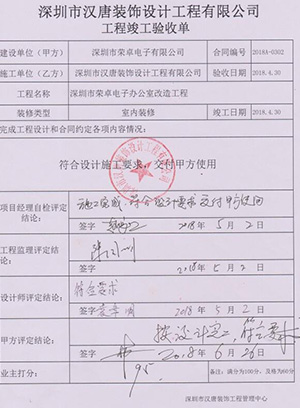 深圳市汉唐装饰设计工程有限公司
工程竣工验收单
建设单位（甲方） 深圳市荣卓电子有限公司 合同编号 2018A-0302
施工单位（乙方） 深圳市汉唐装饰设计工程有限公司 验收日期 2018.4.30
工程名称 深圳市荣卓电子办公室改造工程
装修类型 室内装修 竣工日期 2018.4.30
完成工程设计和合同约定各项内容情况：
符合设计施工要求，交付甲方使用
项目经理自检评定结论： 施工完成，符合设计要求交付甲方使用
签字 2018年5月2日
工程监理评定结论：
签字 2018年5月2日
设计师评定结论： 符合要求
签字 2018年5月2日
甲方评定结论： 按设计 符合要求
签字 2018年6月26日
业主打分： 95 备注：满分为100分，及格为60分
深圳市汉唐装饰工程管理中心